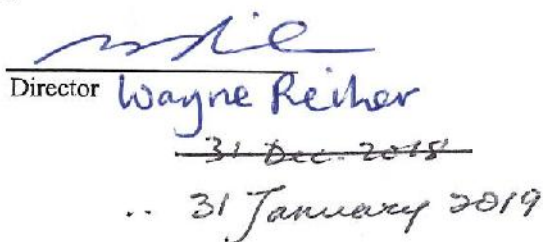 Director Wayne Reiher
31 Dec. 2018
.. 31 January 2019